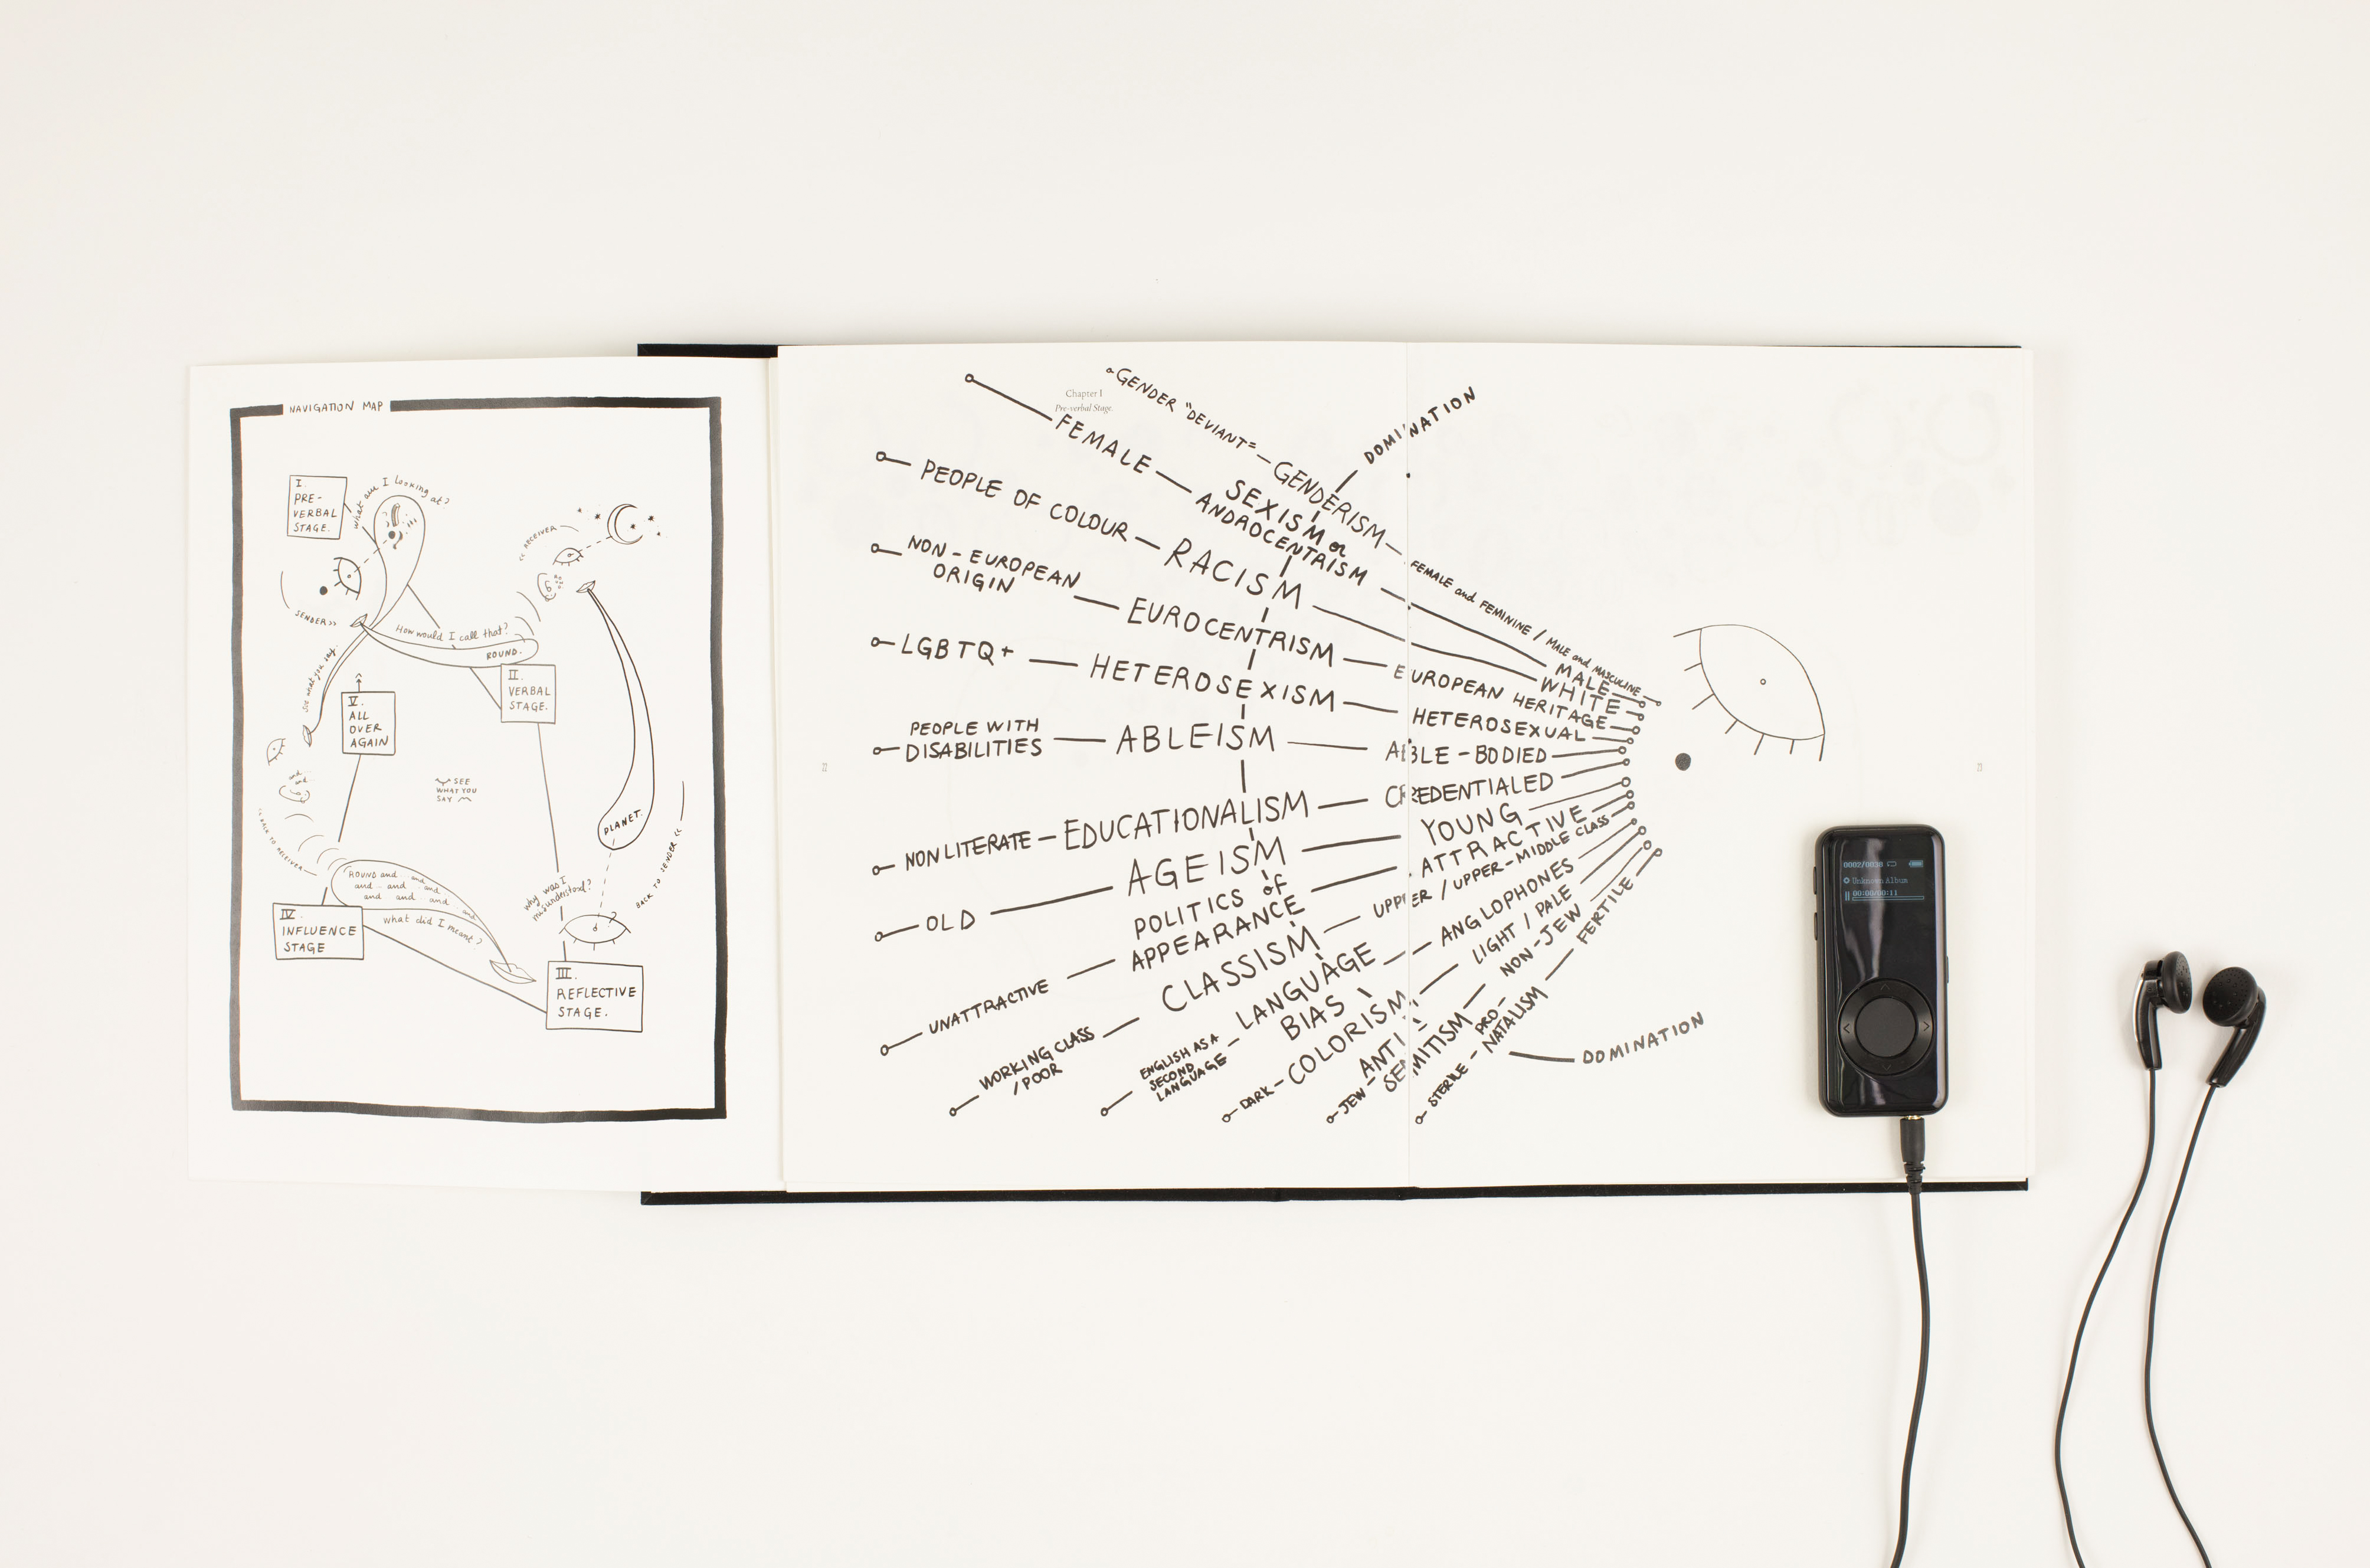 NAVIGATION MAP
I.
PRE-
VERBAL
STAGE.
what am I looking at?
<< RECEIVER
SENDER >>
How would I call that?
ROUND.
II.
VERBAL
STAGE.
see what you say.
V.
ALL
OVER
AGAIN
and..
and..
SEE
WHAT YOU
SAY
PLANET.
<< BACK TO RECEIVER
BACK TO SENDER <<
ROUND and .. and ..
and .. and .. and ..
and .. and .. and .. and
why was I
misunderstood?
what did I meant?
IV.
INFLUENCE
STAGE
III.
REFLECTIVE
STAGE.
Chapter I
Pre-verbal Stage.
GENDER "DEVIANT" — GENDERISM — FEMALE and FEMININE / MALE and MASCULINE
DOMINATION
FEMALE — SEXISM or
ANDROCENTRISM — MALE
PEOPLE OF COLOUR — RACISM — WHITE
NON-EUROPEAN
ORIGIN — EUROCENTRISM — EUROPEAN HERITAGE
LGBTQ+ — HETEROSEXISM — HETEROSEXUAL
PEOPLE WITH
DISABILITIES — ABLEISM — ABLE-BODIED
22
23
NONLITERATE — EDUCATIONALISM — CREDENTIALED
OLD — AGEISM — YOUNG
UNATTRACTIVE — POLITICS of
APPEARANCE — ATTRACTIVE
WORKING CLASS
/POOR — CLASSISM — UPPER / UPPER-MIDDLE CLASS
ENGLISH AS A
SECOND
LANGUAGE — LANGUAGE
BIAS — ANGLOPHONES
DARK — COLORISM — LIGHT / PALE
JEW — ANTI
SEMITISM — NON-JEW
STERILE — PRO-
NATALISM — FERTILE
DOMINATION
0002/0028
Unknown Album
00:00/00:11